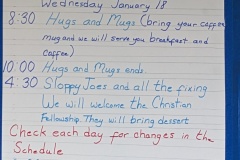 Wednesday January 18
8:30 Hugs and Mugs (bring your coffee
mug and we will serve you breakfast and
coffee)
10:00 Hugs and Mugs ends
4:30 Sloppy Joes and all the fixing
We will welcome the Christian
Fellowship. They will bring dessert
Check each day for changes in the
Schedule